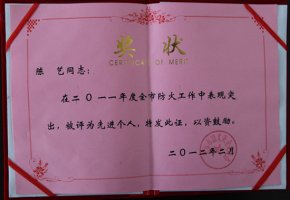 奖状
CERTIFICATE OF MERIT
陈 艺同志：
在二〇一一年度全市防火工作中表现突
出，被评为先进个人，特发此证，以资鼓励。
二〇一二年二月